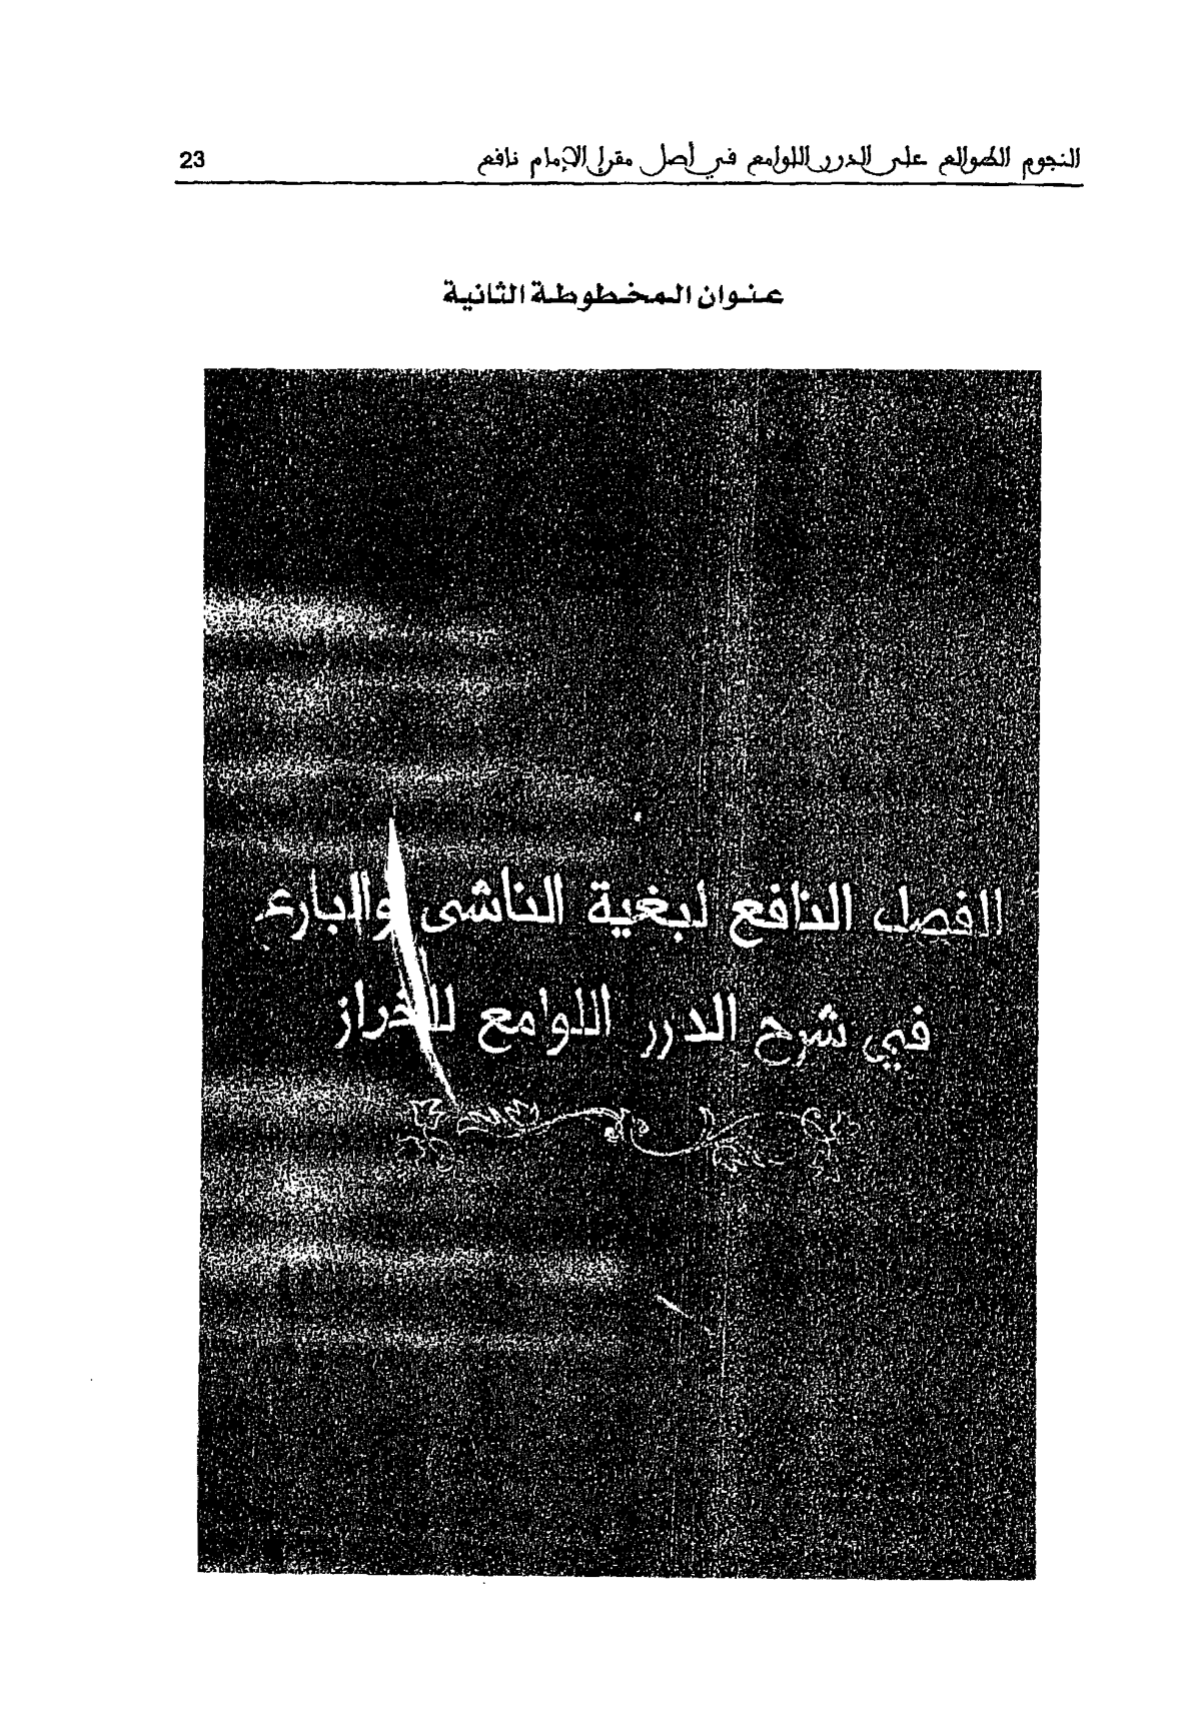 النجوم الطوالع على الدرر اللوامع في أصل مقرإ الإمام نافع 23
عنوان المخطوطة الثانية
الفصل النافع لبغية الناشى والبارع
في شرح الدرر اللوامع للخراز